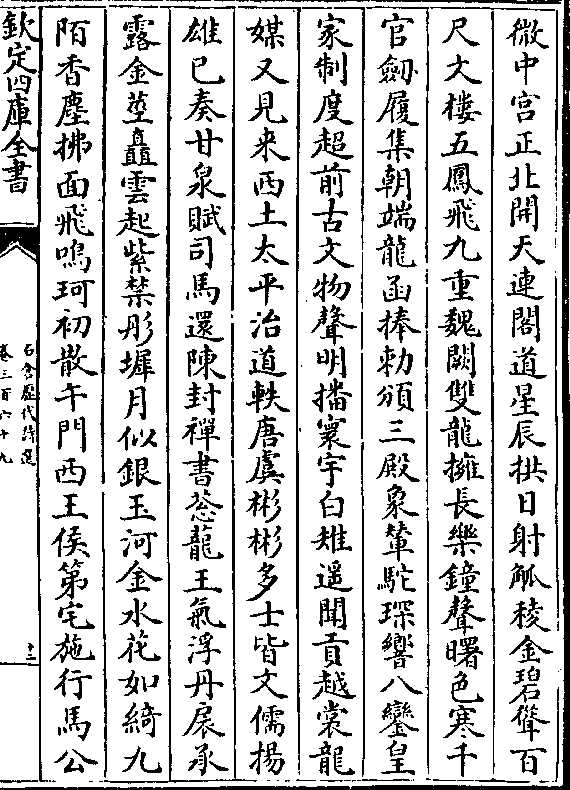 微中宮正北開天連閣道星辰拱日射觚稜金碧聳百
尺文樓五鳳飛九重魏闕雙龍擁長樂鐘聲曙色寒千
官劒履集朝端龍函捧勅頒三殿象輦駝琛響八鑾皇
家制度超前古文物聲明播寰宇白雉遥聞貢越裳龍
媒又見来西土太平治道軼唐虞彬彬多士皆文儒揚
雄已奏甘泉賦司馬還陳封禪書葱龍王氣浮丹扆承
露金莖矗雲起紫禁彤墀月似銀玉河金水花如綺九
陌香塵拂面飛鳴珂初散午門西王侯第宅施行馬公
欽定四庫全書
石倉歷代詩選
卷三百六十九
十二